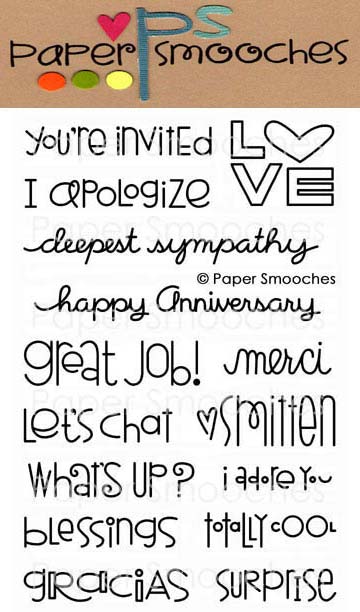 PS
paper smooches
you're invited
LOVE
I apologize
deepest sympathy
© Paper Smooches
happy Anniversary
great job! merci
Let's chat smitten
What's up? i adore you
blessings totally cool
gracias surprise